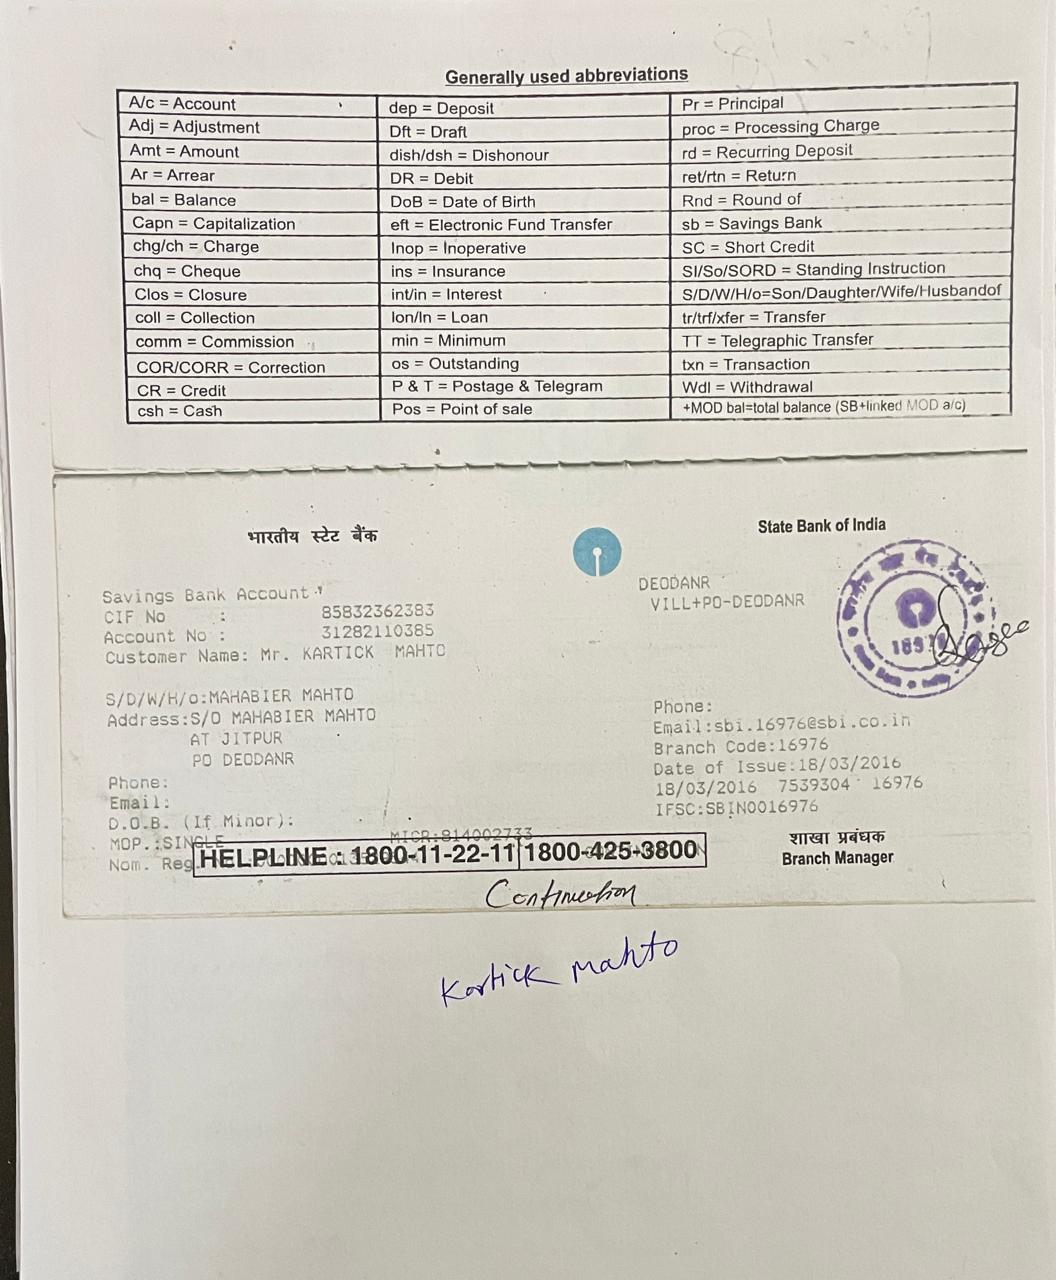 Generally used abbreviations
A/c = Account
Adj = Adjustment
Amt = Amount
Ar = Arrear
bal = Balance
Capn = Capitalization
chg/ch = Charge
chq = Cheque
Clos = Closure
coll = Collection
comm = Commission
COR/CORR = Correction
CR = Credit
csh = Cash
dep = Deposit
Dft = Draft
dish/dsh = Dishonour
DR = Debit
DoB = Date of Birth
eft = Electronic Fund Transfer
Inop = Inoperative
ins = Insurance
int/in = Interest
lon/ln = Loan
min = Minimum
os = Outstanding
P & T = Postage & Telegram
Pos = Point of sale
Pr = Principal
proc = Processing Charge
rd = Recurring Deposit
ret/rtn = Return
Rnd = Round of
sb = Savings Bank
SC = Short Credit
SI/So/SORD = Standing Instruction
S/D/W/H/o=Son/Daughter/Wife/Husbandof
tr/trf/xfer = Transfer
TT = Telegraphic Transfer
txn = Transaction
Wdl = Withdrawal
+MOD bal=total balance (SB+linked MOD a/c)
भारतीय स्टेट बैंक
State Bank of India
Savings Bank Account
CIF No : 85832362383
Account No : 31282110385
Customer Name: Mr. KARTICK MAHTO
S/D/W/H/o:MAHABIER MAHTO
Address:S/O MAHABIER MAHTO
AT JITPUR
PO DEODANR
Phone:
Email:
D.O.B. (If Minor):
MOP.:SINGLE
MICR:814002733
Nom. Reg
DEODANR
VILL+PO-DEODANR
Phone:
Email:sbi.16976@sbi.co.in
Branch Code:16976
Date of Issue:18/03/2016
18/03/2016 7539304 16976
IFSC:SBIN0016976
शाखा प्रबंधक
Branch Manager
HELPLINE : 1800-11-22-11 1800-425-3800
Continuation
Kartick Mahto